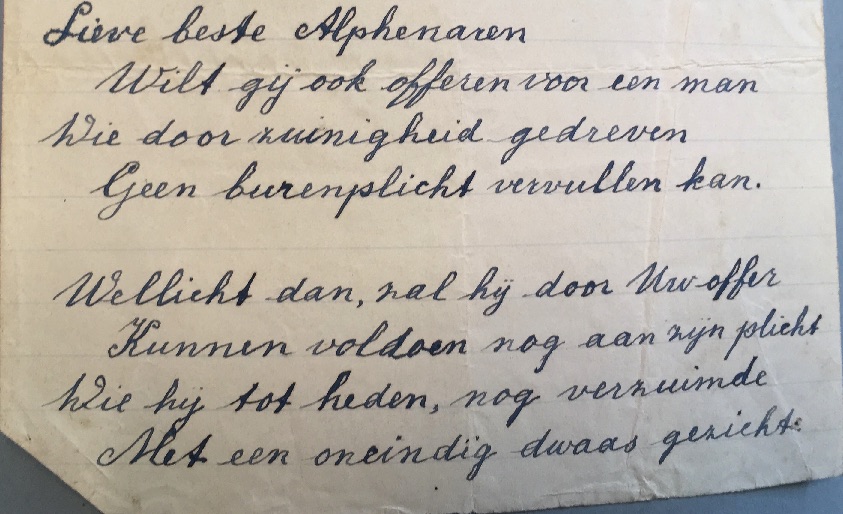 Lieve beste Alphenaren
Wilt gij ook offeren voor een man
Die door zuinigheid gedreven
Geen burenplicht vervullen kan.
Wellicht dan, zal hij door Uw offer
Kunnen voldoen nog aan zijn plicht
Die hij tot heden, nog verzuimde
Met een oneindig dwaas gezicht.